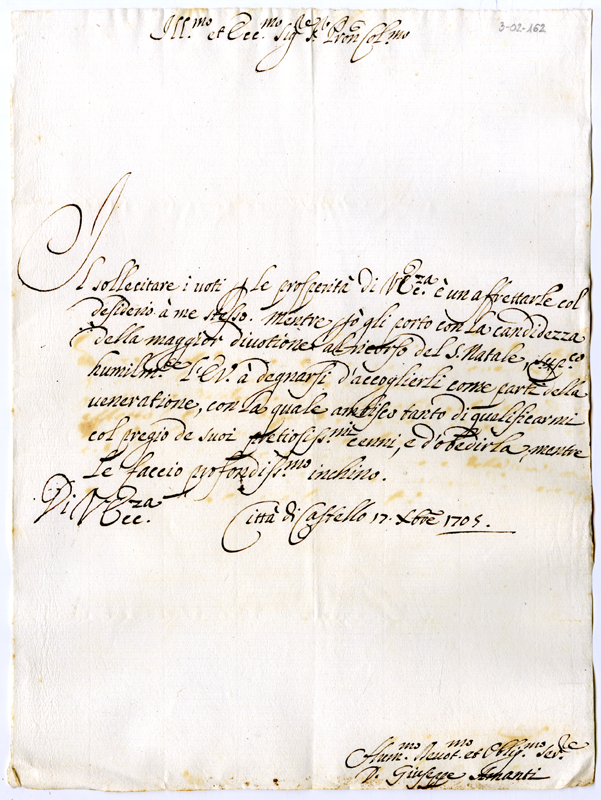 3-02-162
Ill.mo et Ecc.mo Sig.re Pron Col.mo
Il sollecitare i voti per le prosperità di V. Ecc.za è un affrettarle col
desiderio à me stesso. mentre Jo gli porto con la candidezza
della maggior divotione al ricorso del S. Natale, suppco
humilm.te l'E.V. à degnarsi d'accoglierli come parti della
veneratione, con la quale ambisco tanto di qualificarmi
col pregio de suoi pretiosiss.mi cenni, e d'obedirla, mentre
Le faccio profondiss.mo inchino.
Di V. Ecc.za
Città di Castello 17. Xbre 1705.
Hum.mo Devot.mo et Oblig.mo Ser.re
D. Giuseppe Amanti